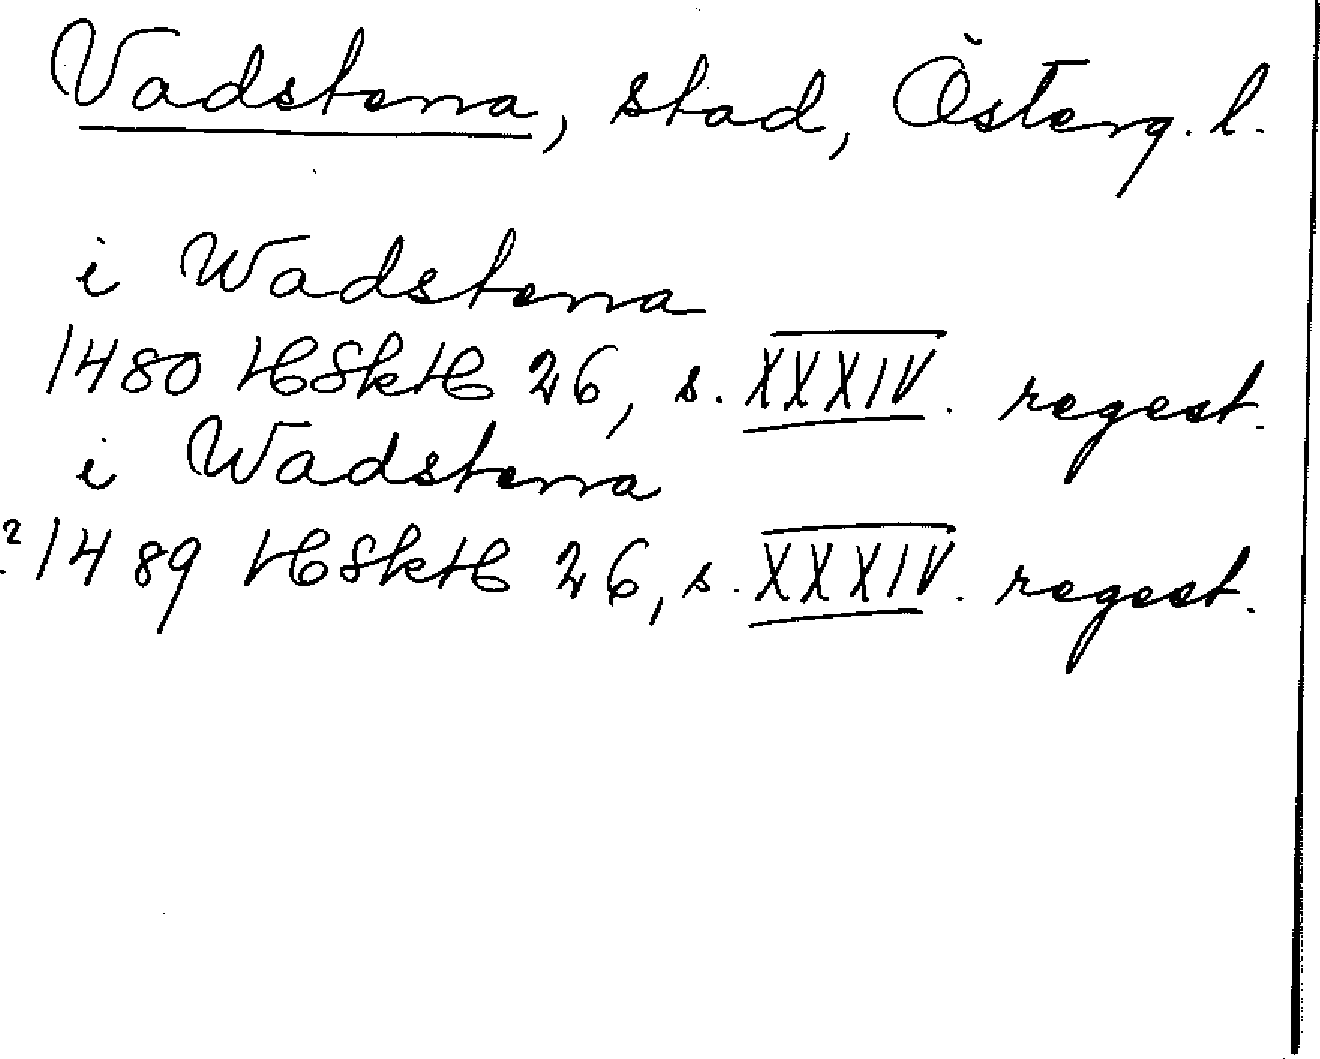 Vadstena, stad, Österg. l.
i Wadstena
1480 HSkH 26, s. XXXIV. regest.
i Wadstena
? 1489 HSkH 26, s. XXXIV. regest.